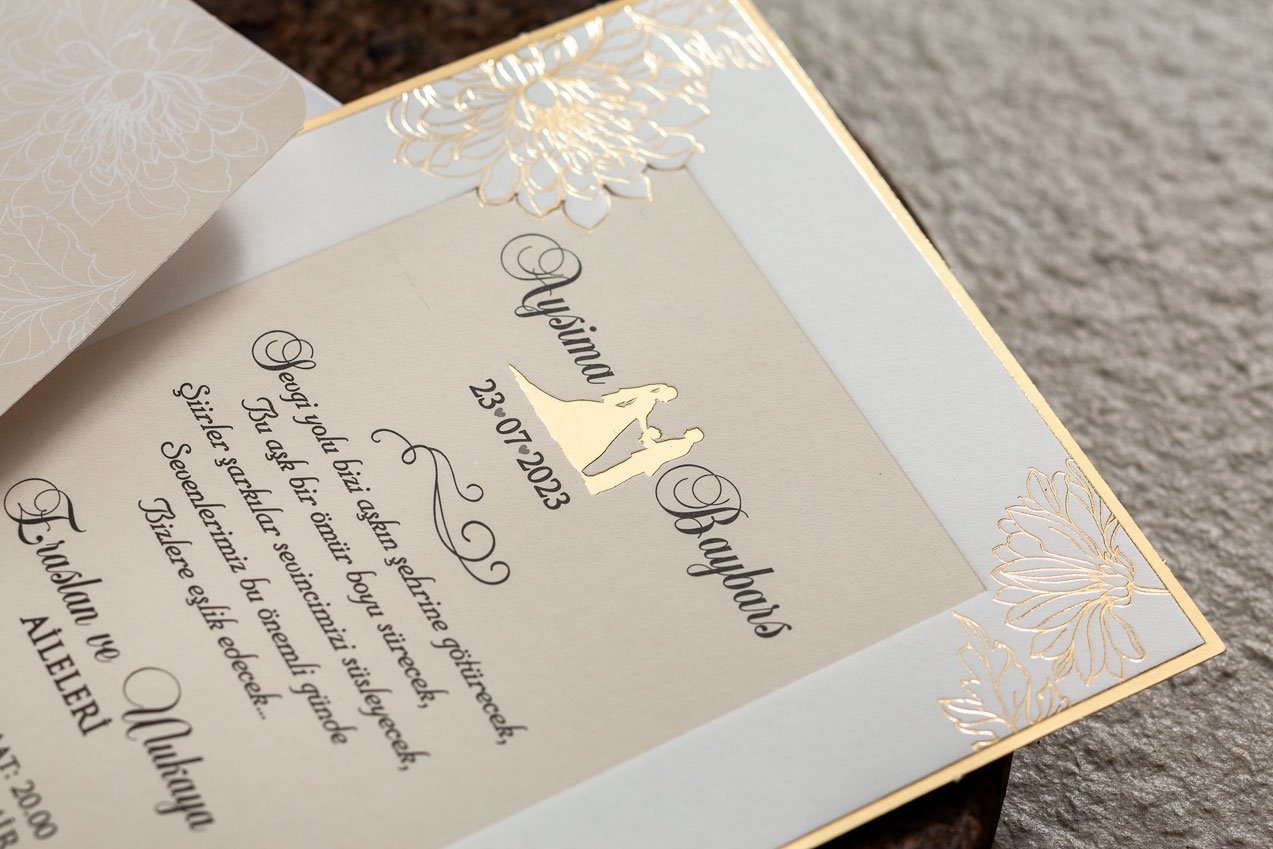 Aysima
Baybars
23•07•2023
Sevgi yolu bizi aşkın şehrine götürecek,
Bu aşk bir ömür boyu sürecek,
Şiirler şarkılar sevincimizi süsleyecek,
Sevenlerimiz bu önemli günde
Bizlere eşlik edecek...
Eraslan ve Ulukaya
AİLELERİ
20.00